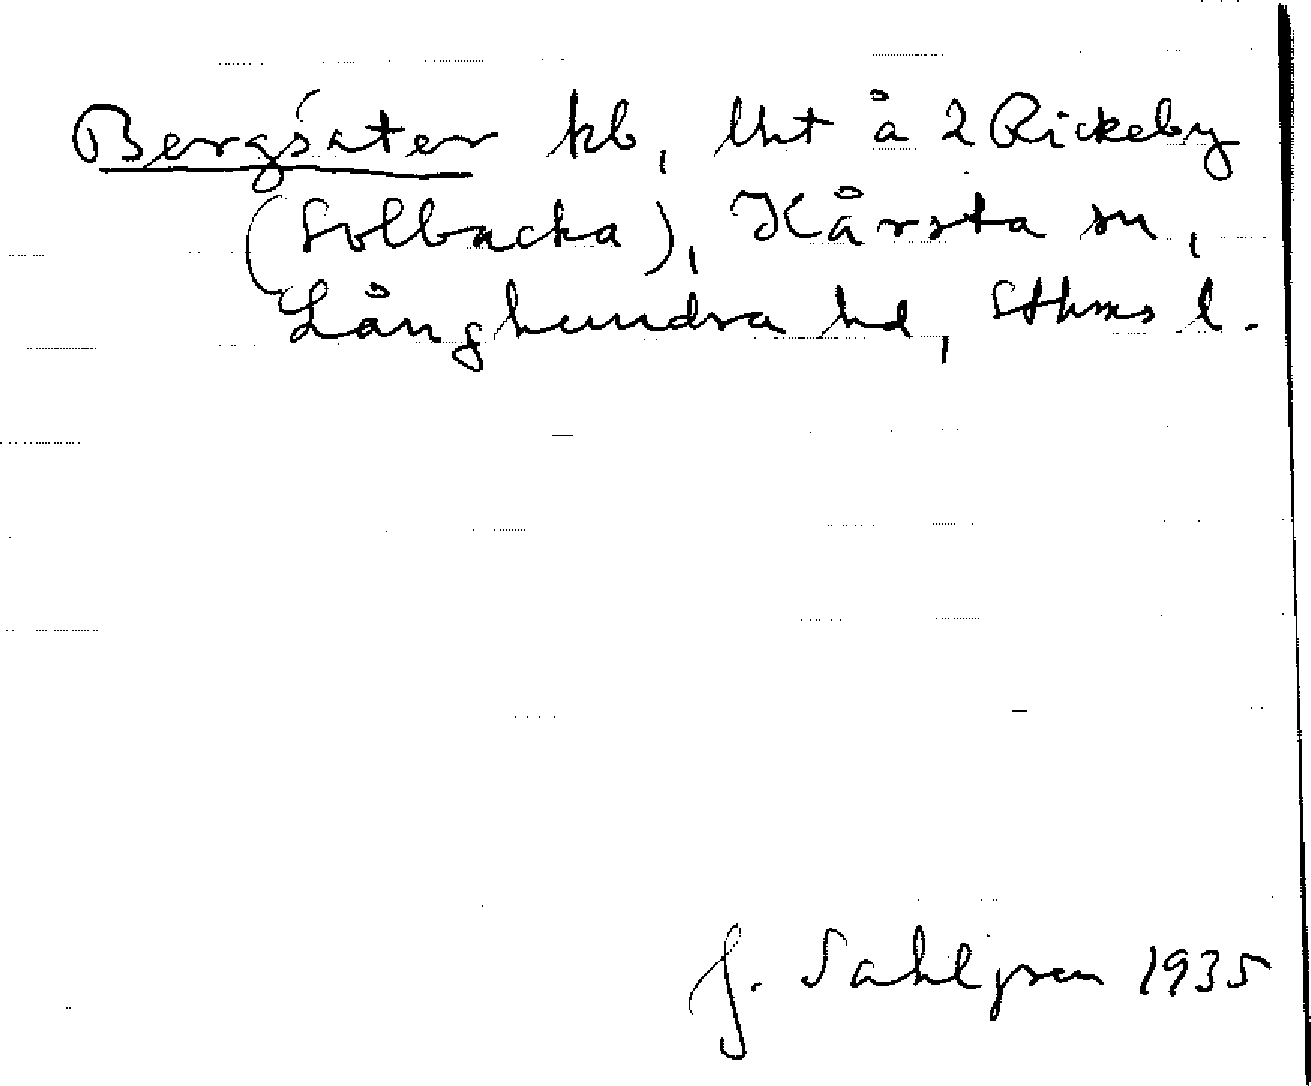 Bergsater kb, lht å 2 Rickeby
(Solbacka), Kårsta sn,
Långhundra hd, Sthms l.
J. Sahlgren 1935